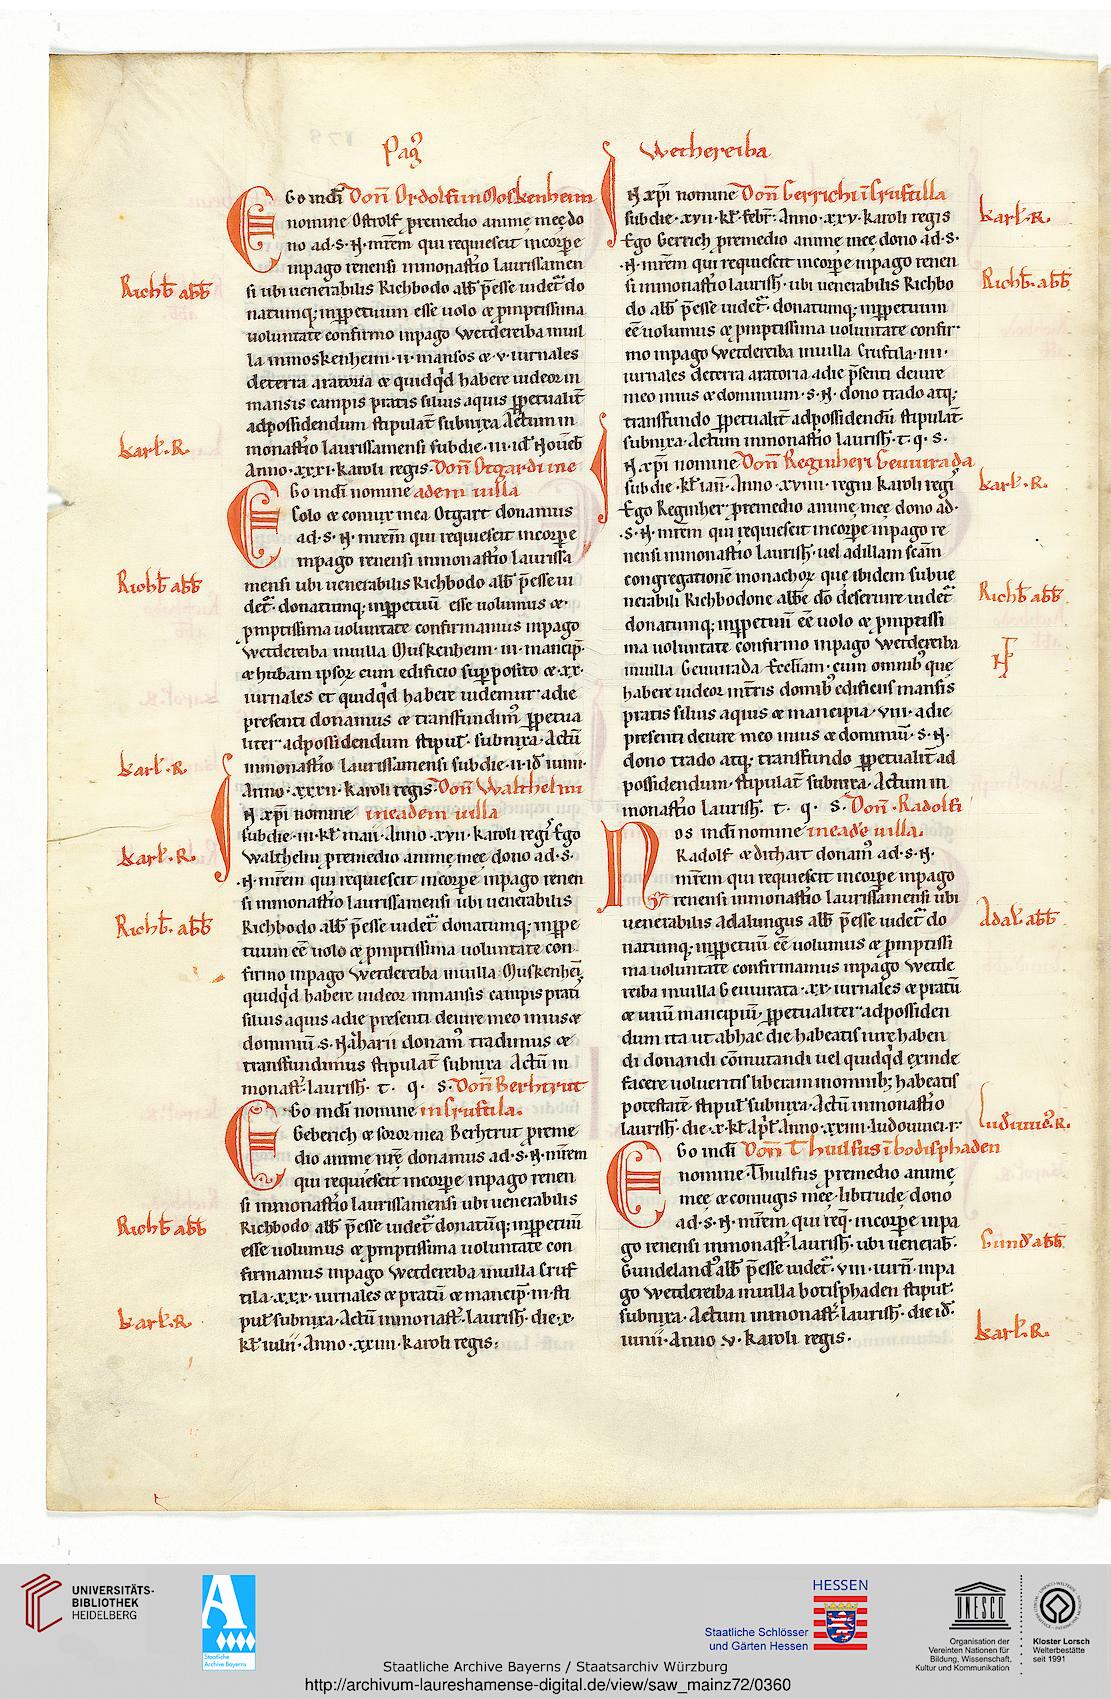 Pagꝰ Wethereiba
Ego in dī Don̄ Ordolfi in Moskenheim
nomine Ostrolf ꝑremedio animę meę do
no ad·S·N·mr̄em qui requiescit incorꝑe
inpago renensi inmonast̄io laurissamen
si ubi uenerabilis Richbodo abb̄ p̄esse uidet᷑ do
natumq; inꝑpetuum esse uolo & ꝓmptissima
uoluntate confirmo inpago Wetdereiba inuil
la inmoskenheim·ii·mansos &·v·iurnales
deterra aratoria & quidq̍d habere uideor in
mansis campis pratis siluis aquis ꝑpetualit̄
adpossidendum stipulat̄ subnixa Actum in
monast̄io laurissamensi subdie·iii·id̄ Nouēb̄
Anno·xxxi·karoli regis·Don̄ Otgardi in e
Ego indī nomine adem uilla
Solo & coniux mea Otgart donamus
ad·S·N·mr̄em qui requiescit incorꝑe
inpago renensi inmonast̄io laurissa
mensi ubi uenerabilis Richbodo abb̄ p̄esse ui
det᷑·donatumq; inꝑpetuū esse uolumus &
ꝓmptissima uoluntate confirmamus inpago
Wetdereiba inuilla Muskenheim·iii·mancip̄
& hubam ipsoꝝ cum edificio suꝑposito &·xx·
iurnales et quidq̍d habere uidemur adie
presenti donamus & transfundimꝰ ꝑpetua
liter adpossidendum stipul̄·subnixa·Actū
inmonast̄io laurissamensi subdie·ii·id̄ iunii·
Anno·xxxii·karoli regis·Don̄ Walthelmi
In xp̄i nomine ineadem uilla
subdie·iii·kl̄ maii·Anno·xvii·karoli regiꝰ Ego
Walthelm ꝑremedio animę meę dono ad·S·
·N·mr̄em qui requiescit incorꝑe inpago renen
si inmonast̄io laurissamensi ubi uenerabilis
Richbodo abb̄ p̄esse uidet᷑ donatumq; inꝑpe
tuum eē uolo & ꝓmptissima uoluntate con
firmo inpago Wetdereiba inuilla Muskenheī
quidq̍d habere uideor inmansis campis prati
siluis aquis adie presenti deiure meo inius &
dominiū S·Nazharii donamꝰ tradimus &
transfundimus stipulat̄ subnixa Actū in
monast̄·laurish̄·t· q· s·Don̄ Berhtrut
Ego indī nomine in sruftila.
Geberich & soror mea Berhtrut ꝑreme
dio animę nr̄ę donamus ad·S·N·mr̄em
qui requiescit incorꝑe inpago renen
si inmonast̄io laurissamensi ubi uenerabilis
Richbodo abb̄ p̄esse uidet᷑ donatūq; inꝑpetuū
esse uolumus & ꝓmptissima uoluntate con
firmamus inpago Wetdereiba inuilla Cruf
tila·xxx·iurnales & pratū & mancip̄·iii·sti
pul̄ subnixa·Actū inmonast̄·laurish̄·die·x·
kl̄ iulii·Anno·xxiiii·karoli regis:
Richb̄ abb̄
karl̄·R·
Richb̄ abb̄
karl̄·R·
karl̄·R·
Richb̄·abb̄
Richb̄ abb̄
karl̄·R·
In xp̄i nomine Don̄ Gerrichi ī Cruftilla
subdie·xvii·kl̄·febr̄·Anno·xxv·karoli regis
Ego Gerrich ꝑremedio animę meę dono ad·S·
·N·mr̄em qui requiescit incorꝑe inpago renen
si inmonast̄io laurish̄·ubi uenerabilis Richbo
do abb̄ p̄esse uidet᷑·donatumq; inꝑpetuum
eē uolumus & ꝓmptissima uoluntate confir
mo inpago Wetdereiba inuilla Cruftila·iiii·
iurnales deterra aratoria adie p̄senti deiure
meo inius & dominium·S·N·dono trado atq;
transfundo ꝑpetualit̄ adpossidendū stipulat̄
subnixa·Actum inmonast̄io laurish̄·t·q·s·
In xp̄i nomine Don̄ Reginheri Geuuirada
subdie·kl̄ ian̄·Anno·xviiii·regni karoli regiꝰ
Ego Reginher ꝑremedio animę meę dono ad·
·S·N·mr̄em qui requiescit incorꝑe inpago re
nensi inmonast̄io laurish̄·uel adillam scām
congregationē monachoꝝ que ibidem subue
nerabili Richbodone abbē dō deseruire uidet᷑
donatumq; inꝑpetuū eē uolo & ꝓmptissi
ma uoluntate confirmo inpago Wetdereiba
inuilla Geuuirada Eccl̄iam·cum omnibꝰ que
habere uideor interris domibꝰ edificiis mansis
pratis siluis aquis & mancipia·viii·adie
presenti deiure meo inius & dominiū·S·N·
dono trado atq; transfundo ꝑpetualit̄ ad
possidendum·stipulat̄ subnixa·Actum in
monast̄io laurish̄·t· q· s·Don̄·Radolfi
Nos indī nomine ineadē uilla.
Radolf & dichart donamꝰ ad·S·N·
mr̄em qui requiescit incorꝑe inpago
renensi inmonast̄io laurissamensi ubi
uenerabilis adalungus abb̄ p̄esse uidet᷑ do
natumq; inꝑpetuū eē uolumus & ꝓmptissi
ma uoluntate confirmamus inpago Wetde
reiba inuilla Geuuirata·xx·iurnales & pratū
& unū mancipiū·ꝑpetualiter adpossiden
dum ita ut abhac die habeatis iure haben
di donandi cōmutandi uel quidq̍d exinde
facere uolueritis liberam inomnib; habeatis
potestatē·stipul̄ subnixa·Actū inmonast̄io
laurish̄·die·x·kl̄ ap̄l·Anno·xxiiii·ludouuici·r·
Ego indī Don̄ Thiulfus ī bodisphaden
nomine·Thiulfus ꝑremedio animę
meę & coniugis męę·libtrude·dono
ad·S·N·mr̄em qui req̄·incorꝑe inpa
go renensi inmonast̄·laurish̄·ubi uenerab̄·
Gundelandꝰ abb̄ p̄esse uidet᷑·viii·iurn̄·inpa
go Wetdereiba inuilla botisphaden stipul̄
subnixa·Actum inmonast̄·laurish̄·die id̄·
iunii·Anno·v·karoli regis·
karl̄·R·
Richb̄·abb̄
karl̄·R·
Richb̄ abb̄
Adal̄·abb̄
Ludiuuicꝰ·R·
Gund̄ abb̄
karl̄·R·
UNIVERSITÄTS-
BIBLIOTHEK
HEIDELBERG
A
Staatliche
Archive Bayerns
HESSEN
Staatliche Schlösser
und Gärten Hessen
UNESCO
Organisation der
Vereinten Nationen für
Bildung, Wissenschaft,
Kultur und Kommunikation
Kloster Lorsch
Welterbestätte
seit 1991
Staatliche Archive Bayerns / Staatsarchiv Würzburg
http://archivum-laureshamense-digital.de/view/saw_mainz72/0360